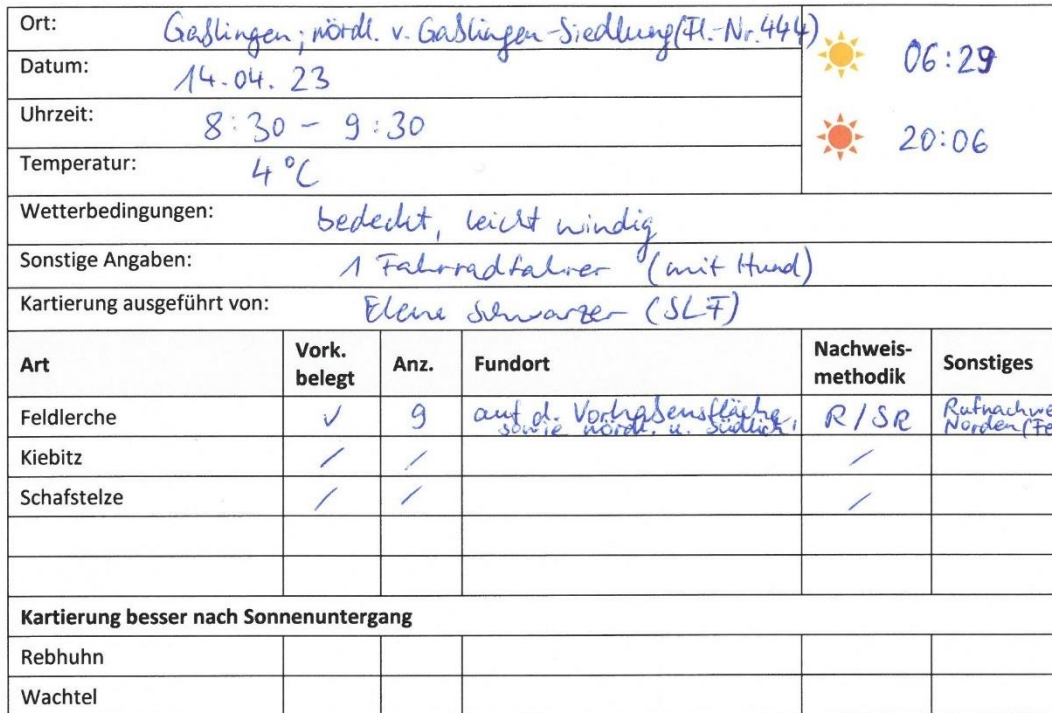 Ort: Gablingen; nördl. v. Gablingen-Siedlung (Fl.-Nr. 444)
06:29
Datum: 14.04.23
Uhrzeit: 8:30 - 9:30
20:06
Temperatur: 4°C
Wetterbedingungen: bedeckt, leicht windig
Sonstige Angaben: 1 Fahrradfahrer (mit Hund)
Kartierung ausgeführt von: Elena Schwarzer (SLF)
Art Vork. belegt Anz. Fundort Nachweis-methodik Sonstiges
Feldlerche ✓ 9 auf d. Vorhabensfläche, sowie nördl. u. südlich R/SR Rufnachwe Norden (Fe
Kiebitz / / /
Schafstelze / / /
Kartierung besser nach Sonnenuntergang
Rebhuhn
Wachtel